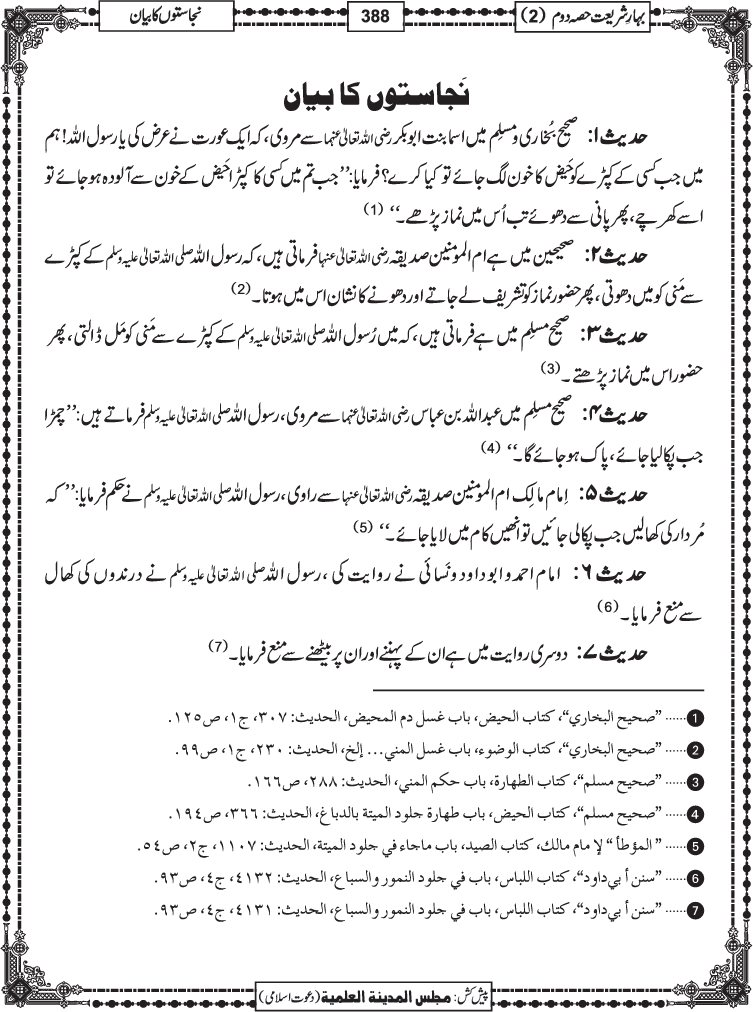 بہارِ شریعت حصہ دوم (2)
388
نجاستوں کا بیان
نَجاستوں کا بیان
حدیث ۱: صحیح بُخاری و مسلِم میں اسما بنت ابوبکر رضی اللہ تعالیٰ عنہا سے مروی، کہ ایک عورت نے عرض کی یا رسول اللہ! ہم
میں جب کسی کے کپڑے کو حَیض کا خون لگ جائے تو کیا کرے؟ فرمایا: ’’جب تم میں کسی کا کپڑا حَیض کے خون سے آلودہ ہو جائے تو
اسے کھرچے، پھر پانی سے دھوئے تب اُس میں نماز پڑھے۔‘‘ (1)
حدیث ۲: صحیحین میں ہے ام المومنین صدیقہ رضی اللہ تعالیٰ عنہا فرماتی ہیں، کہ رسول اللہ صلی اللہ تعالیٰ علیہ وسلم کے کپڑے
سے مَنی کو میں دھوتی، پھر حضور نماز کو تشریف لے جاتے اور دھونے کا نشان اس میں ہوتا۔ (2)
حدیث ۳: صحیح مسلِم میں ہے فرماتی ہیں، کہ میں رُسول اللہ صلی اللہ تعالیٰ علیہ وسلم کے کپڑے سے مَنی کو مَل ڈالتی، پھر
حضور اس میں نماز پڑھتے۔ (3)
حدیث ۴: صحیح مسلِم میں عبداللہ بن عباس رضی اللہ تعالیٰ عنہما سے مروی، رسول اللہ صلی اللہ تعالیٰ علیہ وسلم فرماتے ہیں: ’’چمڑا
جب پکالیا جائے، پاک ہو جائے گا۔‘‘ (4)
حدیث ۵: اِمام مالِک ام المومنین صدیقہ رضی اللہ تعالیٰ عنہا سے راوی، رسول اللہ صلی اللہ تعالیٰ علیہ وسلم نے حکم فرمایا: ’’کہ
مُردار کی کھالیں جب پکالی جائیں تو انھیں کام میں لایا جائے۔‘‘ (5)
حدیث ۶: امام احمد و ابو داود و نَسائی نے روایت کی، رسول اللہ صلی اللہ تعالیٰ علیہ وسلم نے درندوں کی کھال
سے منع فرمایا۔ (6)
حدیث ۷: دوسری روایت میں ہے ان کے پہننے اور ان پر بیٹھنے سے منع فرمایا۔ (7)
1 ...... ”صحيح البخاري“، كتاب الحيض، باب غسل دم المحيض، الحديث: ٣٠٧، ج١، ص١٢٥.
2 ...... ”صحيح البخاري“، كتاب الوضوء، باب غسل المني... إلخ، الحديث: ٢٣٠، ج١، ص٩٩.
3 ...... ”صحيح مسلم“، كتاب الطهارة، باب حكم المني، الحديث: ٢٨٨، ص١٦٦.
4 ...... ”صحيح مسلم“، كتاب الحيض، باب طهارة جلود الميتة بالدباغ، الحديث: ٣٦٦، ص١٩٤.
5 ...... ” المؤطأ “ لإ مام مالك، كتاب الصيد، باب ماجاء في جلود الميتة، الحديث: ١١٠٧، ج٢، ص٥٤.
6 ...... ”سنن أ بي داود“، كتاب اللباس، باب في جلود النمور والسباع، الحديث: ٤١٣٢، ج٤، ص٩٣.
7 ...... ”سنن أ بي داود“، كتاب اللباس، باب في جلود النمور والسباع، الحديث: ٤١٣١، ج٤، ص٩٣.
پیش کش: مجلس المدينة العلمية (دعوت اسلامی)